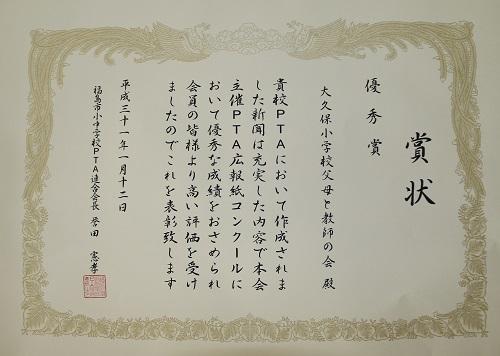 賞状
優秀賞
大久保小学校父母と教師の会 殿
貴校PTAにおいて作成されま
した新聞は充実した内容で本会
主催PTA広報紙コンクールに
おいて優秀な成績をおさめられ
会員の皆様より高い評価を受け
ましたのでこれを表彰致します
平成三十一年一月十二日
福島市小中学校PTA連合会会長 誉田 憲孝